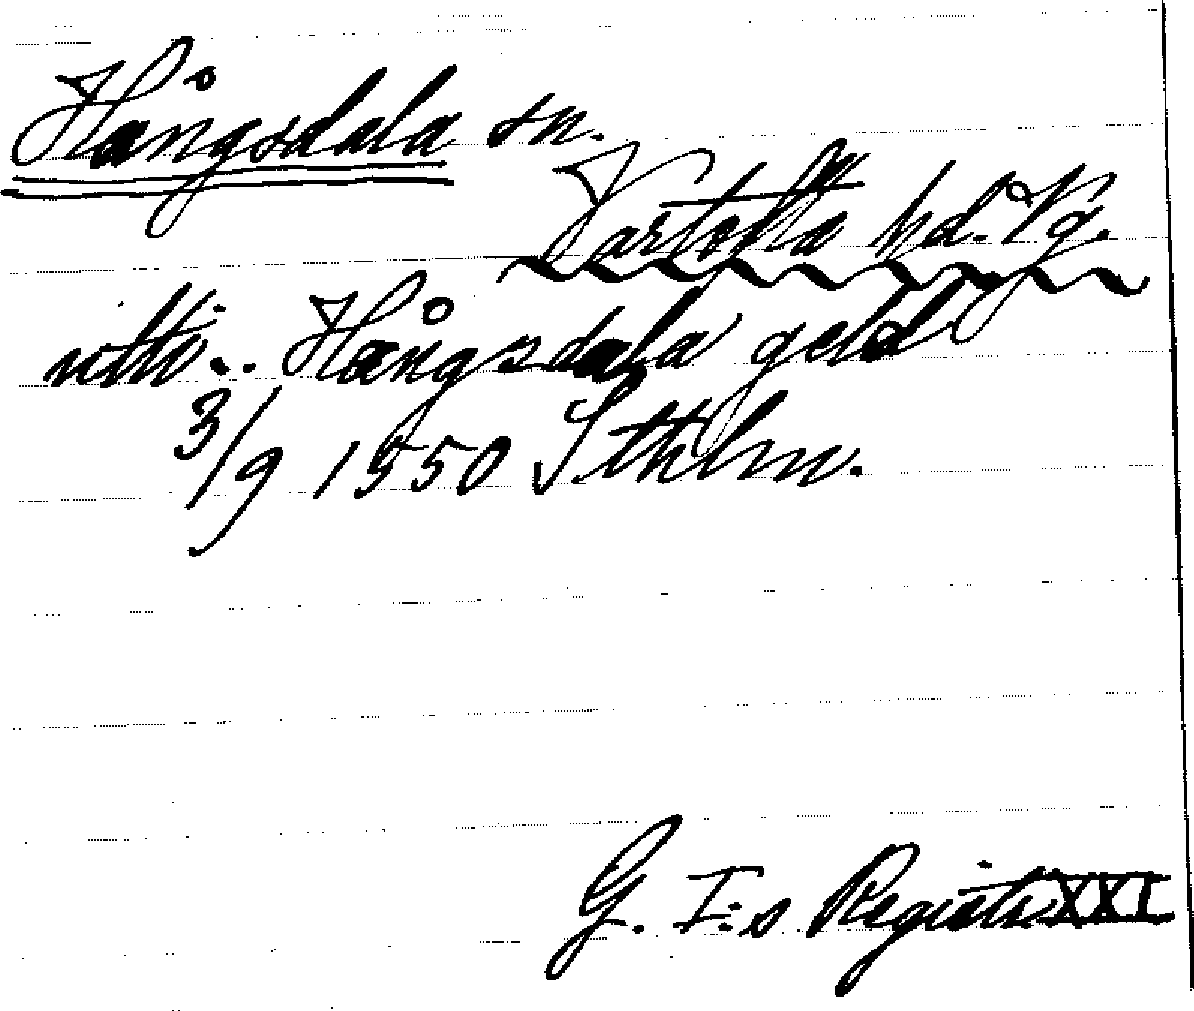 Hångsdala sn.
Vartofta hd. Vg.
Hångsdala geld
3/9 1550 Sthlm.
G. I:s Registr. XXI